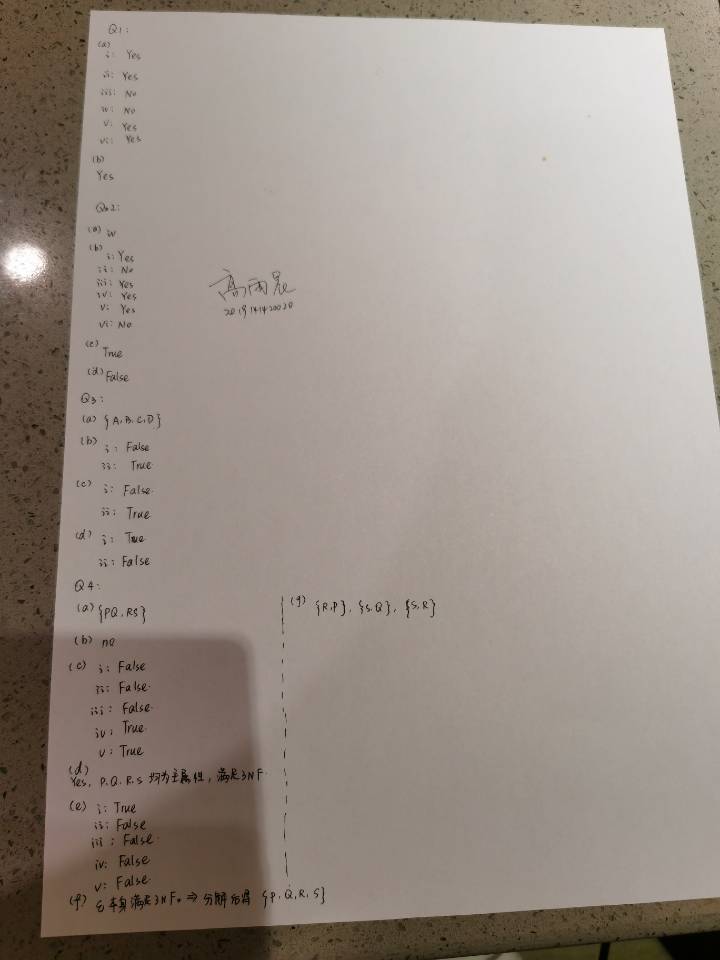 Q1:
(a)
i: Yes
ii: Yes
iii: No
iv: No
v: Yes
vi: Yes
(b)
Yes
Q2:
(a) iv
(b)
i: Yes
ii: No
iii: Yes
iv: Yes
v: Yes
vi: No
高雨晨
(c) True
(d) False
Q3:
(a) {A,B,C,D}
(b) i: False
ii: True
(c) i: False
ii: True
(d) i: True
ii: False
Q4:
(a) {PQ,RS}
(b) no
(c) i: False
ii: False
iii: False
iv: True
v: True
(d)
Yes, P.Q.R.S 均为主属性，满足3NF.
(e) i: True
ii: False
iii: False
iv: False
v: False
(f) 它本身满足3NF。⇒ 分解后得 {P,Q,R,S}
(g) {R,P}, {S,Q}, {S,R}